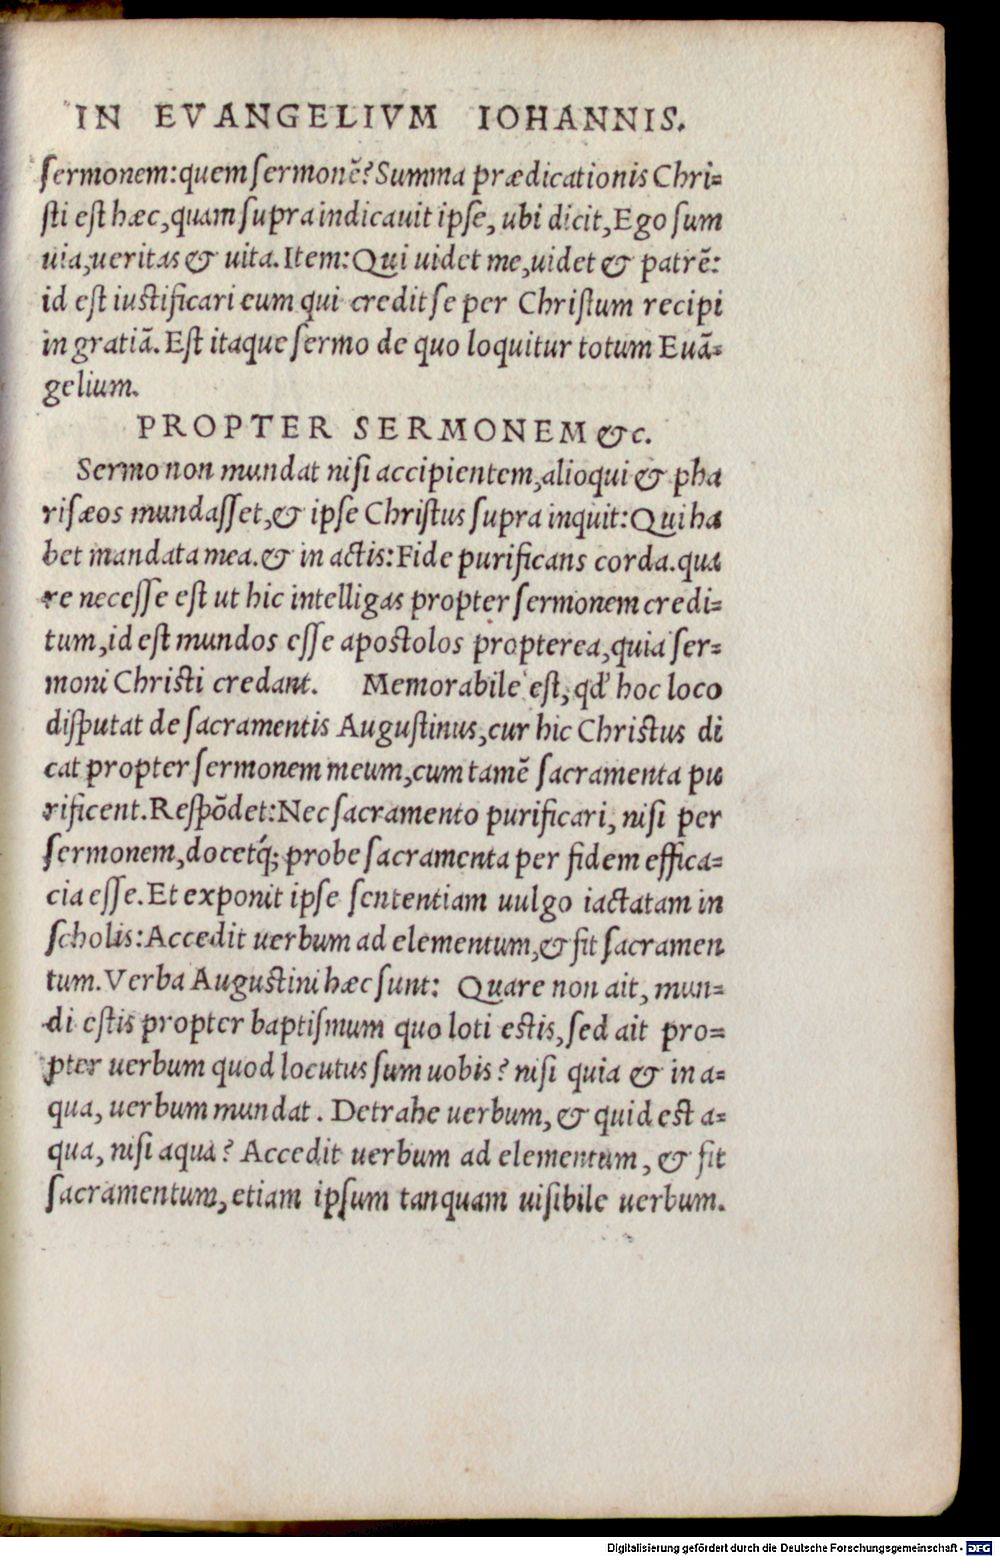 IN EVANGELIVM IOHANNIS.
sermonem: quem sermonẽ? Summa prædicationis Chri-
sti est hæc, quam supra indicauit ipse, ubi dicit, Ego sum
uia, ueritas & uita. Item: Qui uidet me, uidet & patrẽ:
id est iustificari eum qui credit se per Christum recipi
in gratiã. Est itaque sermo de quo loquitur totum Euã-
gelium.
PROPTER SERMONEM &c.
Sermo non mundat nisi accipientem, alioqui & pha
risæos mundasset, & ipse Christus supra inquit: Qui ha
bet mandata mea. & in actis: Fide purificans corda. qua
re necesse est ut hic intelligas propter sermonem credi-
tum, id est mundos esse apostolos propterea, quia ser-
moni Christi credant. Memorabile est, qd' hoc loco
disputat de sacramentis Augustinus, cur hic Christus di
cat propter sermonem meum, cum tamẽ sacramenta pu
rificent. Respõdet: Nec sacramento purificari, nisi per
sermonem, docetq́; probe sacramenta per fidem effica-
cia esse. Et exponit ipse sententiam uulgo iactatam in
scholis: Accedit uerbum ad elementum, & fit sacramen
tum. Verba Augustini hæc sunt: Quare non ait, mun-
di estis propter baptismum quo loti estis, sed ait pro-
pter uerbum quod locutus sum uobis? nisi quia & in a-
qua, uerbum mundat. Detrahe uerbum, & quid est a-
qua, nisi aqua? Accedit uerbum ad elementum, & fit
sacramentum, etiam ipsum tanquam uisibile uerbum.
Digitalisierung gefördert durch die Deutsche Forschungsgemeinschaft - DFG